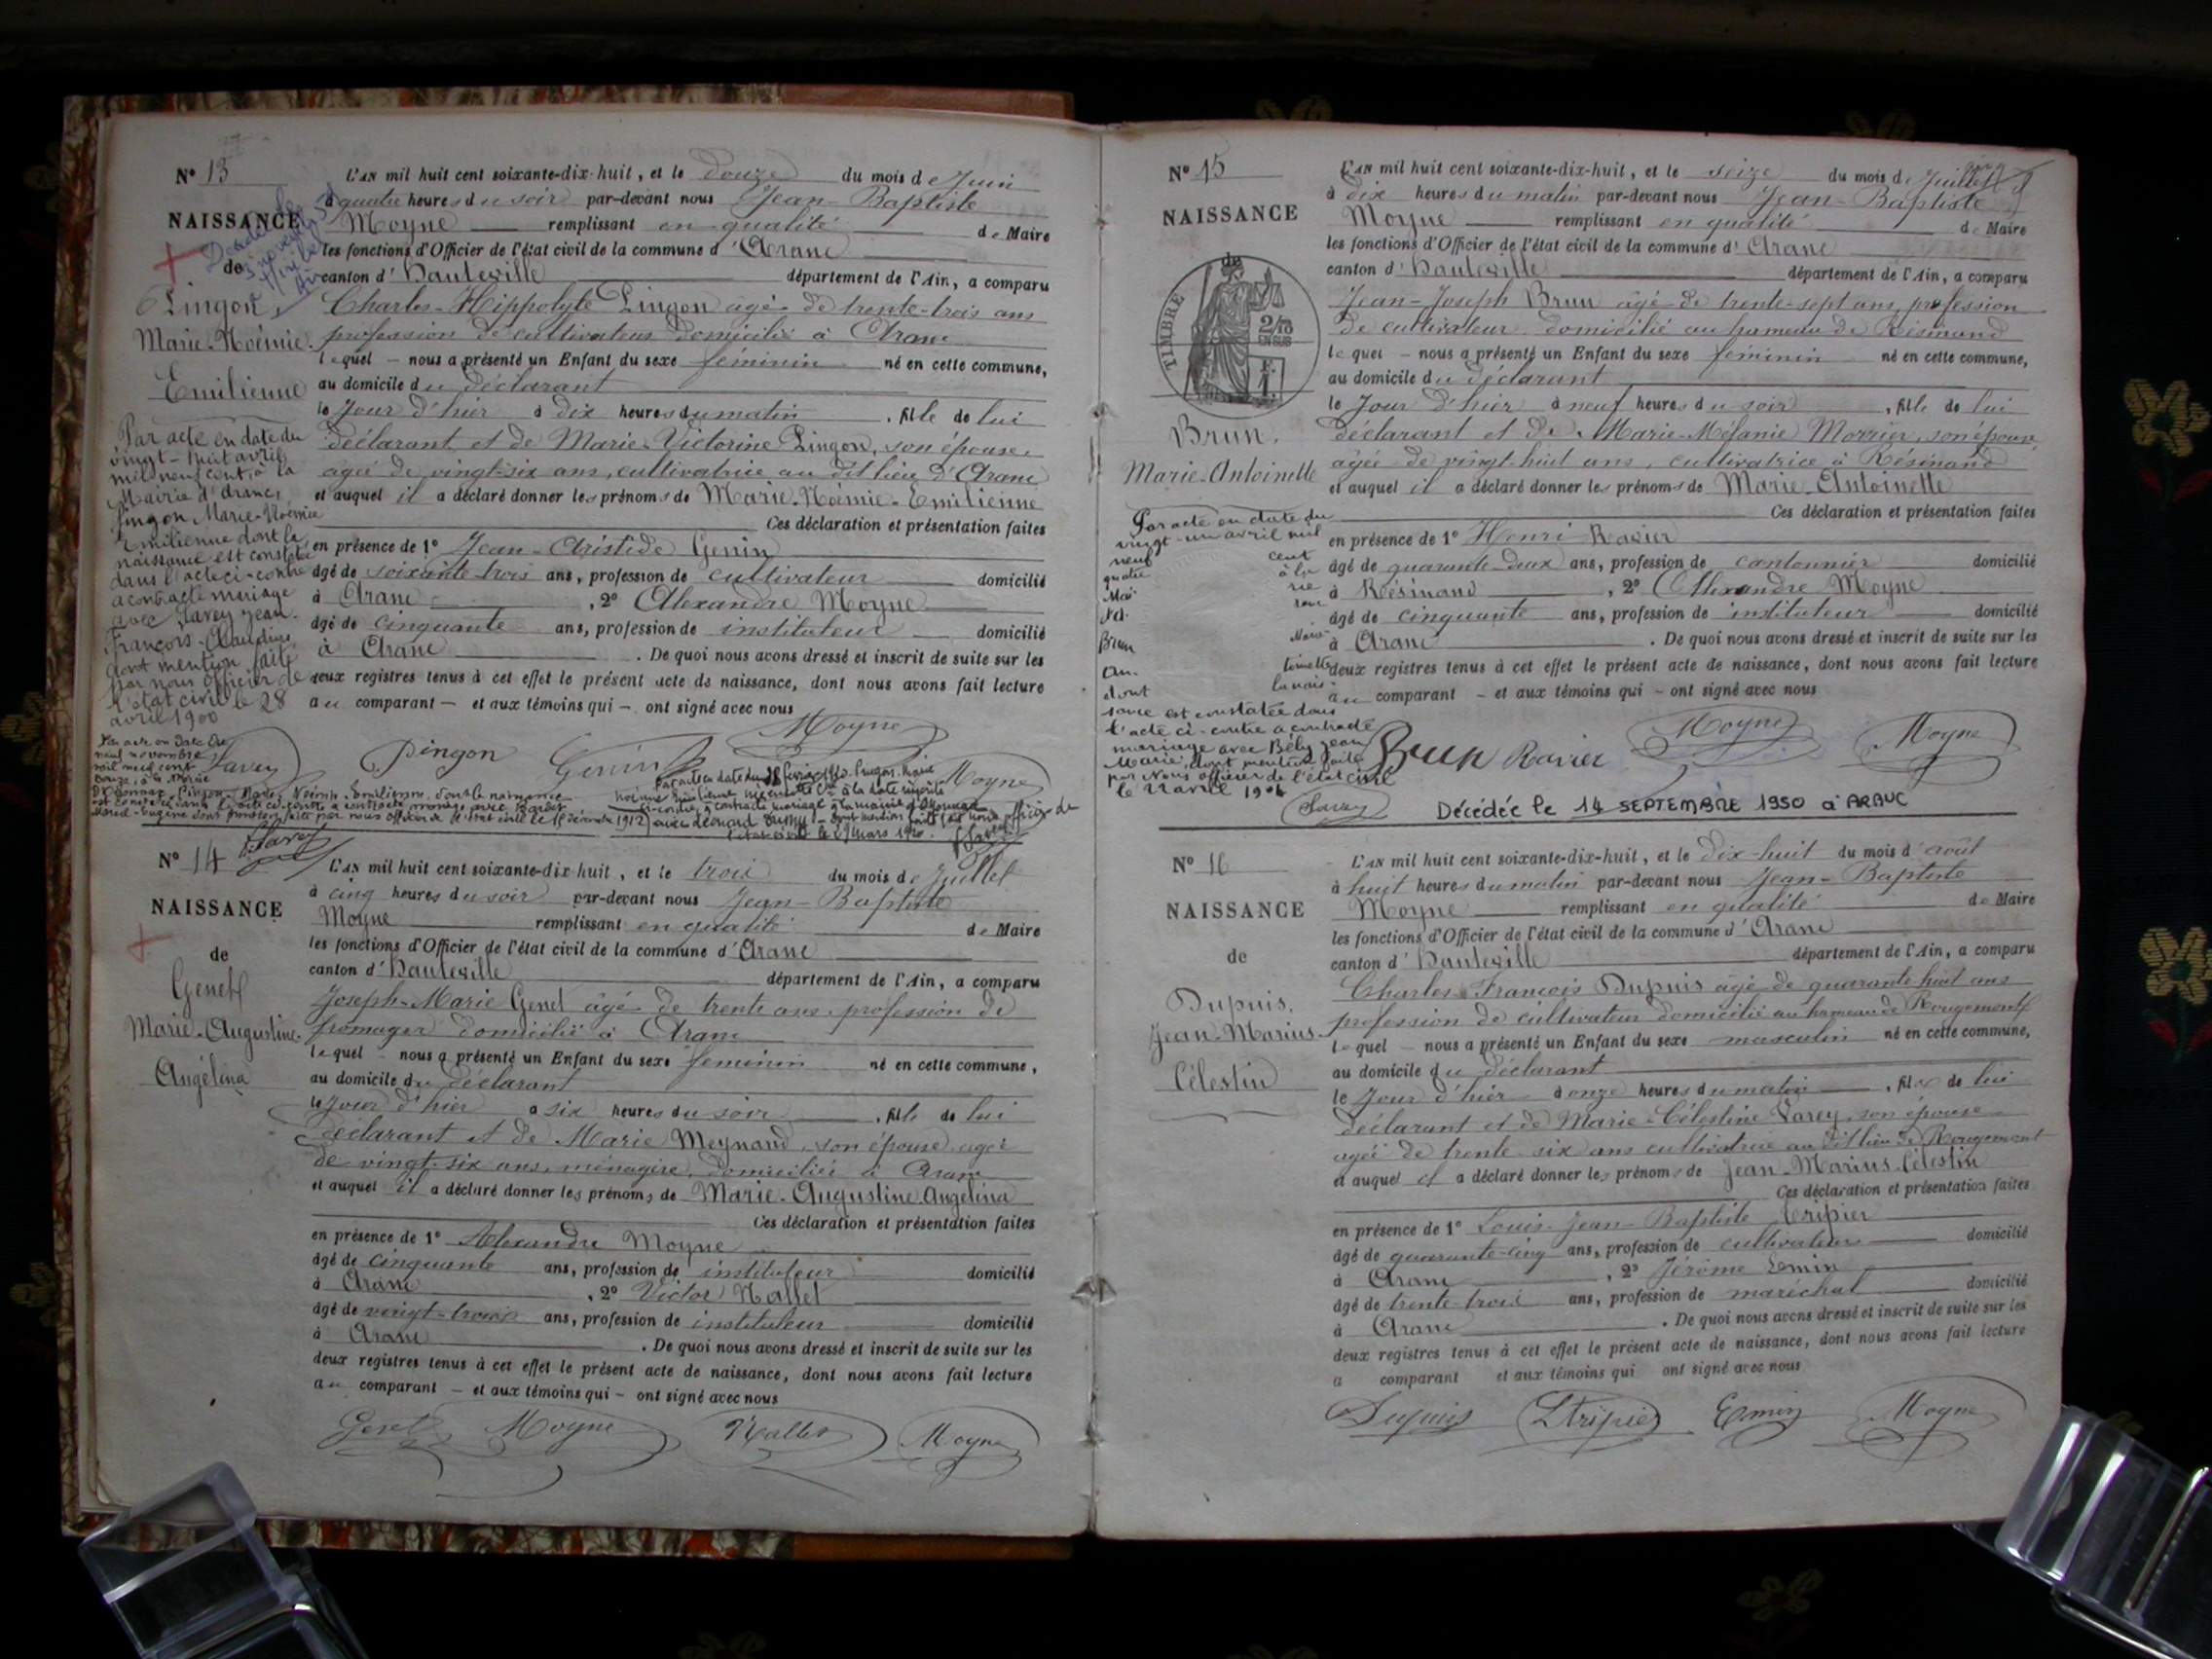 N° 13
NAISSANCE
de
Pingon,
Marie-Noémie-
Emilienne
L'AN mil huit cent soixante-dix-huit, et le douze du mois de Juin
à quatre heures du soir par-devant nous Jean-Baptiste
Moyne remplissant en qualité de Maire
les fonctions d'Officier de l'état civil de la commune d'Aranc
canton d'Hauteville département de l'Ain, a comparu
Charles-Hippolyte Pingon âgé de trente-trois ans
profession de cultivateur domicilié à Aranc
lequel nous a présenté un Enfant du sexe féminin né en cette commune,
au domicile du déclarant
le Jour d'hier à dix heures du matin, fille de lui
déclarant et de Marie-Victorine Pingon, son épouse,
agée de vingt-six ans, cultivatrice au dit lieu d'Aranc
et auquel il a déclaré donner les prénoms de Marie-Noémie-Emilienne
Ces déclaration et présentation faites
en présence de 1° Jean-Aristide Genin
âgé de soixante-trois ans, profession de cultivateur domicilié
à Aranc, 2° Alexandre Moyne
âgé de cinquante ans, profession de instituteur domicilié
à Aranc. De quoi nous avons dressé et inscrit de suite sur les
deux registres tenus à cet effet le présent acte de naissance, dont nous avons fait lecture
au comparant et aux témoins qui ont signé avec nous
Par acte en date du
vingt-huit avril
mil neuf cent, à la
Mairie d'Aranc,
Pingon Marie-Noémie
Emilienne dont la
naissance est constatée
dans l'acte ci-contre
a contracté mariage
avec Savey Jean-
François-Claudius
dont mention faite
par nous Officier de
l'état civil le 28
avril 1900
Par acte en date du
neuf novembre
mil neuf cent
douze, à la Mairie
d'Oyonnax, Pingon Marie Noémie Emilienne, dont la naissance
est constatée dans l'acte ci-contre a contracté mariage avec
Savey
Pingon
Genin
Moyne
Moyne
N° 14
NAISSANCE
de
Genet
Marie-Augustine-
Angélina
L'AN mil huit cent soixante-dix-huit, et le trois du mois de Juillet
à cinq heures du soir par-devant nous Jean-Baptiste
Moyne remplissant en qualité de Maire
les fonctions d'Officier de l'état civil de la commune d'Aranc
canton d'Hauteville département de l'Ain, a comparu
Joseph-Marie Genet âgé de trente ans, profession de
fromager domicilié à Aranc
lequel nous a présenté un Enfant du sexe féminin né en cette commune,
au domicile du déclarant
le Jour d'hier à six heures du soir, fille de lui
déclarant et de Marie Meynand, son épouse, agée
de vingt-six ans, ménagère, domiciliée à Aranc
et auquel il a déclaré donner les prénoms de Marie-Augustine Angélina
Ces déclaration et présentation faites
en présence de 1° Alexandre Moyne
âgé de cinquante ans, profession de instituteur domicilié
à Aranc, 2° Victor Nallet
âgé de vingt-trois ans, profession de instituteur domicilié
à Aranc. De quoi nous avons dressé et inscrit de suite sur les
deux registres tenus à cet effet le présent acte de naissance, dont nous avons fait lecture
au comparant et aux témoins qui ont signé avec nous
Genet Moyne Nallet Moyne
N° 15
NAISSANCE
de
TIMBRE
Brun,
Marie-Antoinette
L'AN mil huit cent soixante-dix-huit, et le seize du mois de Juillet
à dix heures du matin par-devant nous Jean-Baptiste
Moyne remplissant en qualité de Maire
les fonctions d'Officier de l'état civil de la commune d'Aranc
canton d'Hauteville département de l'Ain, a comparu
Jean-Joseph Brun âgé de trente-sept ans, profession
de cultivateur, domicilié au hameau de Résinand
lequel nous a présenté un Enfant du sexe féminin né en cette commune,
au domicile du déclarant
le Jour d'hier à neuf heures du soir, fille de lui
déclarant et de Marie-Mélanie Morrier, son épouse,
agée de vingt-huit ans, cultivatrice à Résinand
et auquel il a déclaré donner les prénoms de Marie-Antoinette
Ces déclaration et présentation faites
en présence de 1° Henri Ravier
âgé de quarante-deux ans, profession de cantonnier domicilié
à Résinand, 2° Alexandre Moyne
âgé de cinquante ans, profession de instituteur domicilié
à Aranc. De quoi nous avons dressé et inscrit de suite sur les
deux registres tenus à cet effet le présent acte de naissance, dont nous avons fait lecture
au comparant et aux témoins qui ont signé avec nous
Par acte en date du
vingt-un avril mil
neuf cent
quatre à la
Brun Marie
An- toinette
dont la nais-
sance est constatée dans
l'acte ci-contre a contracté
mariage avec Bély Jean
Marie, dont mention faite
par Nous officier de l'état civil
Brun Ravier Moyne Moyne
Savey
Décédée le 14 SEPTEMBRE 1950 à ARANC
N° 16
NAISSANCE
de
Dupuis,
Jean-Marius-
Célestin
L'AN mil huit cent soixante-dix-huit, et le dix-huit du mois d'août
à huit heures du matin par-devant nous Jean-Baptiste
Moyne remplissant en qualité de Maire
les fonctions d'Officier de l'état civil de la commune d'Aranc
canton d'Hauteville département de l'Ain, a comparu
Charles-François Dupuis âgé de quarante huit ans
profession de cultivateur domicilié au hameau de Rougemont
lequel nous a présenté un Enfant du sexe masculin né en cette commune,
au domicile du déclarant
le Jour d'hier à onze heures du matin, fils de lui
déclarant et de Marie-Célestine Savey, son épouse
agée de trente-six ans cultivatrice au dit lieu de Rougemont
et auquel il a déclaré donner les prénoms de Jean-Marius-Célestin
Ces déclaration et présentation faites
en présence de 1° Louis-Jean-Baptiste Tripier
âgé de quarante-cinq ans, profession de cultivateur domicilié
à Aranc, 2° Jérôme Emin
âgé de trente-trois ans, profession de maréchal domicilié
à Aranc. De quoi nous avons dressé et inscrit de suite sur les
deux registres tenus à cet effet le présent acte de naissance, dont nous avons fait lecture
a comparant et aux témoins qui ont signé avec nous
Dupuis Tripier Emin Moyne